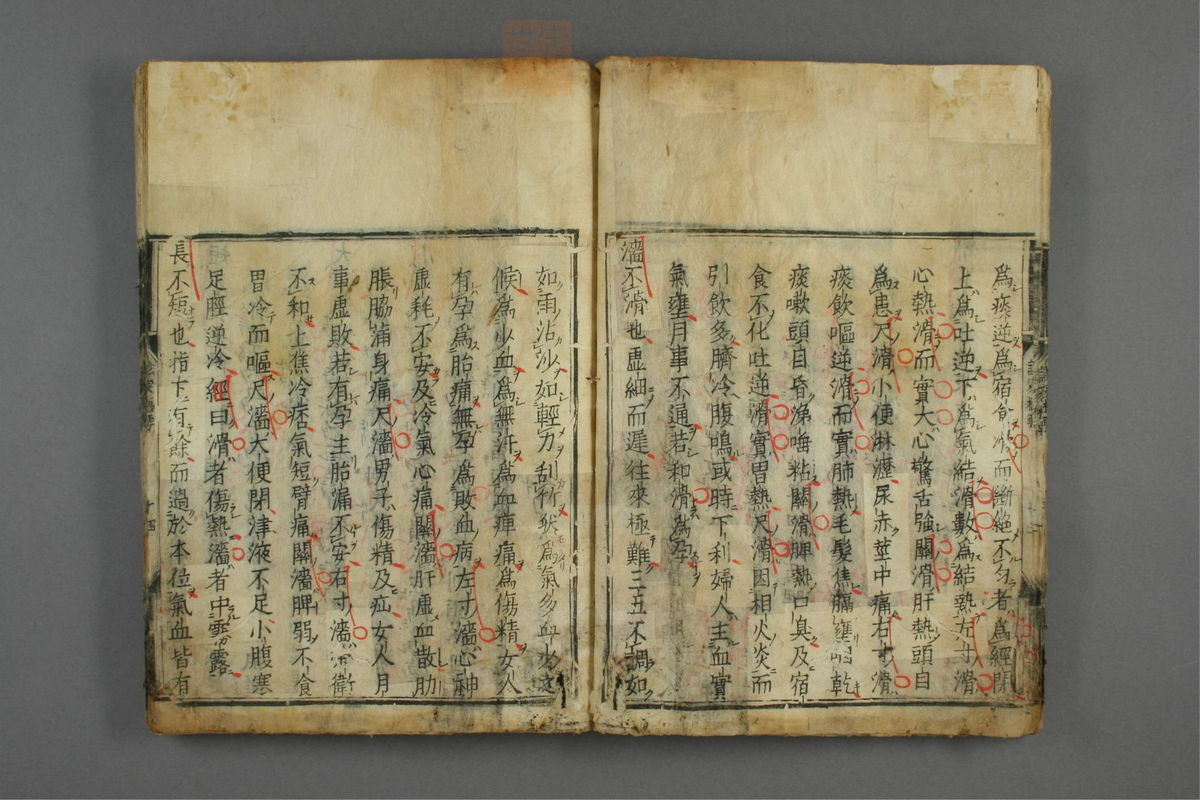 為痰逆為宿食滑而斷絕不匀者為經閉
上為吐逆下為氣結滑數為結熱左寸滑
心熱滑而實大心驚舌強關滑肝熱頭目
為患尺滑小便淋瀝尿赤莖中痛右寸滑
痰飲嘔逆滑而實肺熱毛髮焦膈壅咽乾
痰嗽頭目昏涕唾粘關滑脾熱口臭及宿
食不化吐逆滑實胃熱尺滑因相火炎而
引飲多臍冷腹鳴或時下利婦人主血實
氣壅月事不通若和滑為孕
濇不滑也虛細而遲往來極難三五不調如
如雨沾沙如輕刀刮竹狀為氣多血少之
候為少血為無汗為血痺痛為傷精女人
有孕為胎痛無孕為敗血病左寸濇心神
虛耗不安及冷氣心痛關濇肝虛血散肋
脹脇滿身痛尺濇男子傷精及疝女人月
事虛敗若有孕主胎漏不安右寸濇榮衛
不和上焦冷痞氣短臂痛關濇脾弱不食
胃冷而嘔尺濇大便閉津液不足小腹寒
足脛逆冷經曰滑者傷熱濇者中霧露
長不短也指下有餘而過於本位氣血皆有
十四